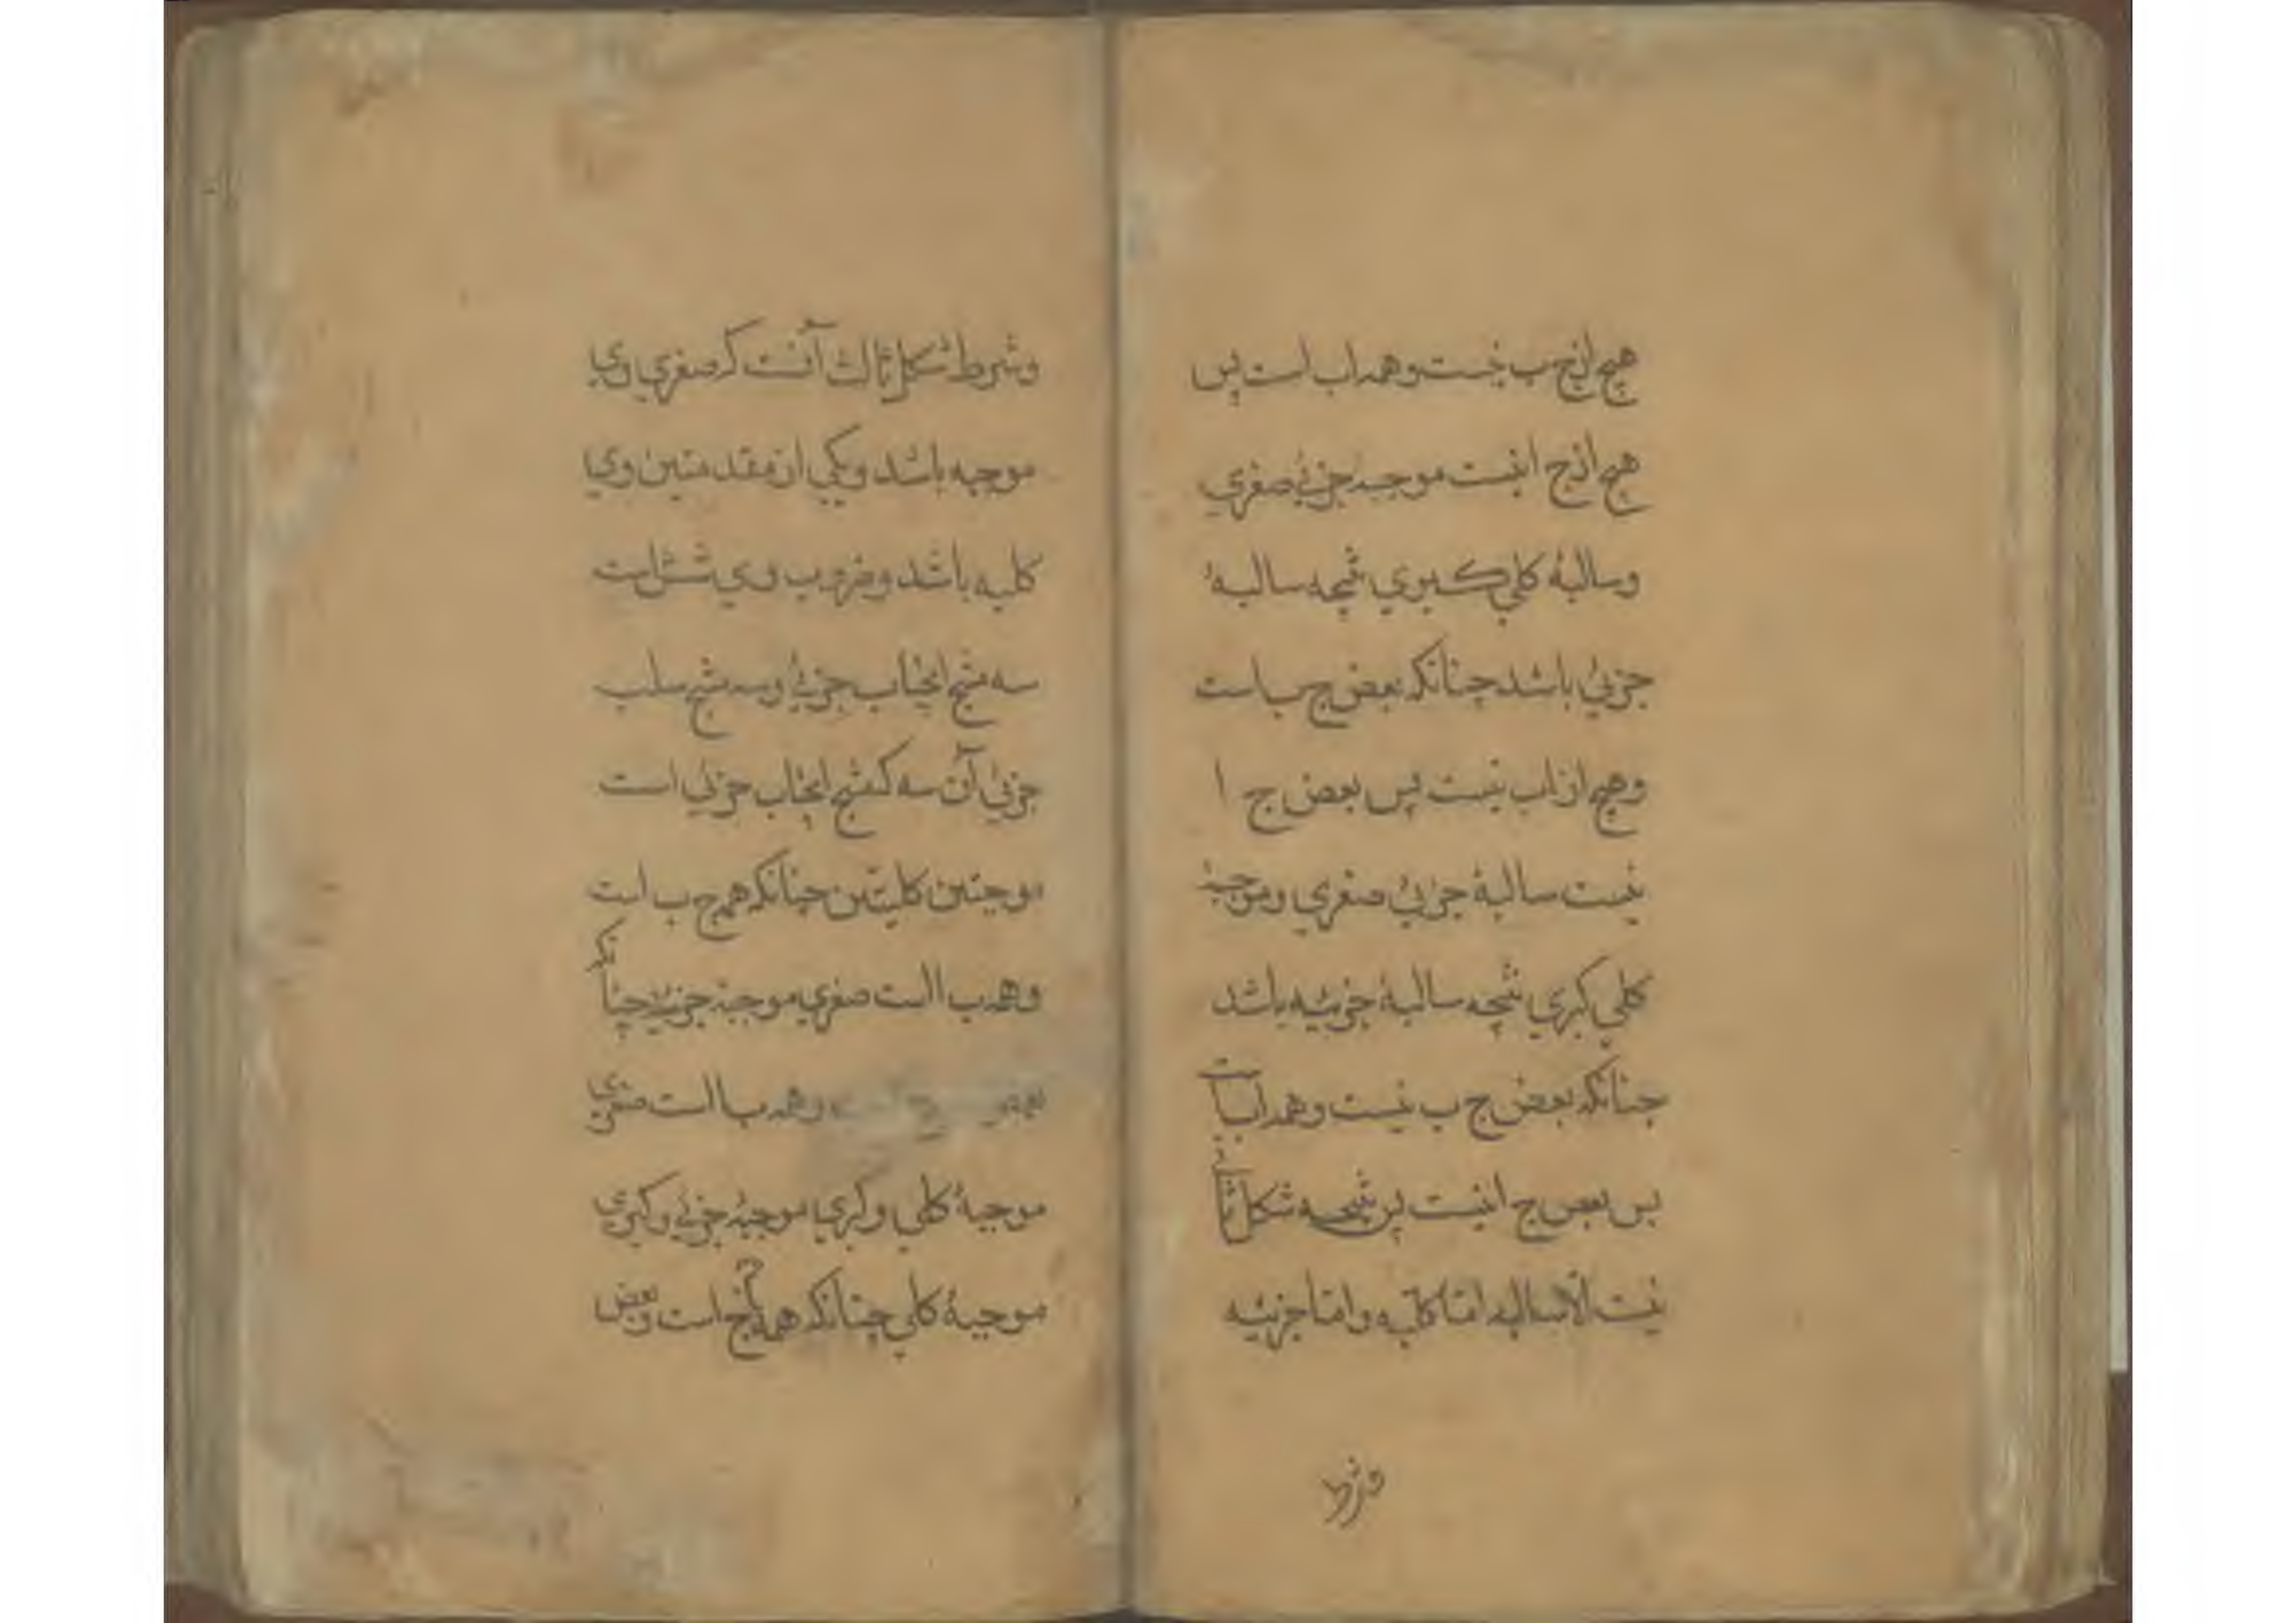 هیچ از ج ب نیست و همه ا ب است پس
هیچ از ج ا نیست موجبه جزئی صغری
و سالبهٔ کلی کبری نتیجه سالبهٔ
جزئی باشد چنانکه بعض ج ب است
و هیچ از ا ب نیست پس بعض ج ا
نیست سالبهٔ جزئی صغری و موجبهٔ
کلی کبری نتیجه سالبهٔ جزئیه باشد
چنانکه بعض ج ب نیست و همه ا ب است
پس بعض ج ا نیست پس نتیجه شکل ثانی
نیست الا سالبه اما کلیه و اما جزئیه
وشرط
وشرط شکل ثالث آنست که صغری وی
موجبه باشد و یکی از مقدمتین وی
کلیه باشد و ضروب وی شش است
سه منتج ایجاب جزئی و سه منتج سلب
جزئی آن سه که منتج ایجاب جزئی است
موجبتین کلیتین چنانکه همه ج ب است
و همه ب ا است صغری موجبهٔ جزئیه چنانکه
بعض ج است و همه ب ا است صغری
موجبهٔ کلی و کبری موجبهٔ جزئی و کبری
موجبهٔ کلی چنانکه همه ج است و بعض